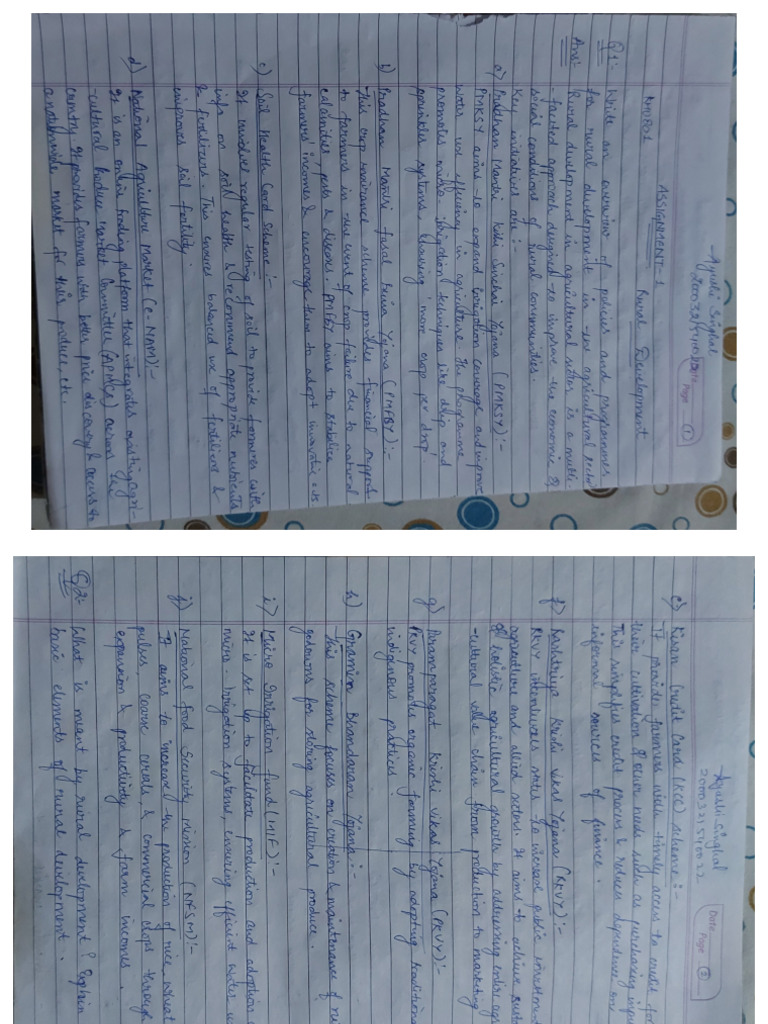 Ayushi Singhal
Page 1
ASSIGNMENT-1
Rural Development
Q1:- Write an overview of policies and programmes
for rural development in the agricultural sector
Ans:- Rural development in agricultural sector is a multi
-faceted approach designed to improve the economic &
social conditions of rural communities.
Key initiatives are :-
a) Pradhan Mantri Krishi Sinchai Yojana (PMKSY) :-
PMKSY aims to expand irrigation coverage and improve
water use efficiency in agriculture. The programme
promotes micro irrigation techniques like drip and
sprinkler systems, ensuring 'more crop per drop'.
b) Pradhan Mantri fasal Bima Yojana (PMFBY) :-
This crop insurance scheme provides financial support
to farmers in the event of crop failure due to natural
calamities, pests & diseases. PMFBY aims to stabilise
farmers' incomes & encourage them to adopt innovative
c) Soil Health Card Scheme :-
It involves regular testing of soil to provide farmers with
info on soil health & recommend appropriate nutrients
& fertilizers. This ensures balanced use of fertilizers &
improves soil fertility.
d) National Agriculture Market (e-NAM):-
It is an online trading platform that integrates existing Agri-
-cultural Produce Market Committee (APMCs) across the
country. It provides farmers with better price discovery & access to
a nationwide market for their produce, etc.
Ayushi Singhal
Date
Page 2
e) Kisan Credit Card (KCC) scheme :-
It provides farmers with timely access to credit for
their cultivation & other needs such as purchasing inputs
This simplifies credit process & reduces dependence on
informal sources of finance.
f) Rashtriya Krishi Vikas Yojana (RKVY) :-
RKVY incentivizes states to increase public investment
expenditure and allied sectors. It aims to achieve
& holistic agricultural growth by addressing entire
-cultural value chain from production to marketing
g) Paramparagat Krishi Vikas Yojana (PKVY) :-
PKVY promotes organic farming by adopting traditional
indigenous practices.
h) Gramin Bhandaran Yojana :-
This scheme focuses on creation & maintenance of
godowns for storing agricultural produce.
i) Micro Irrigation Fund (MIF) :-
It is set up to facilitate production and adoption
micro-irrigation systems, ensuring efficient water
j) National food Security Mission (NFSM) :-
It aims to increase the production of rice, wheat
pulses, coarse cereals, & commercial crops through
expansion & productivity & farm incomes.
Q2:- What is meant by rural development? Explain
basic elements of rural development.